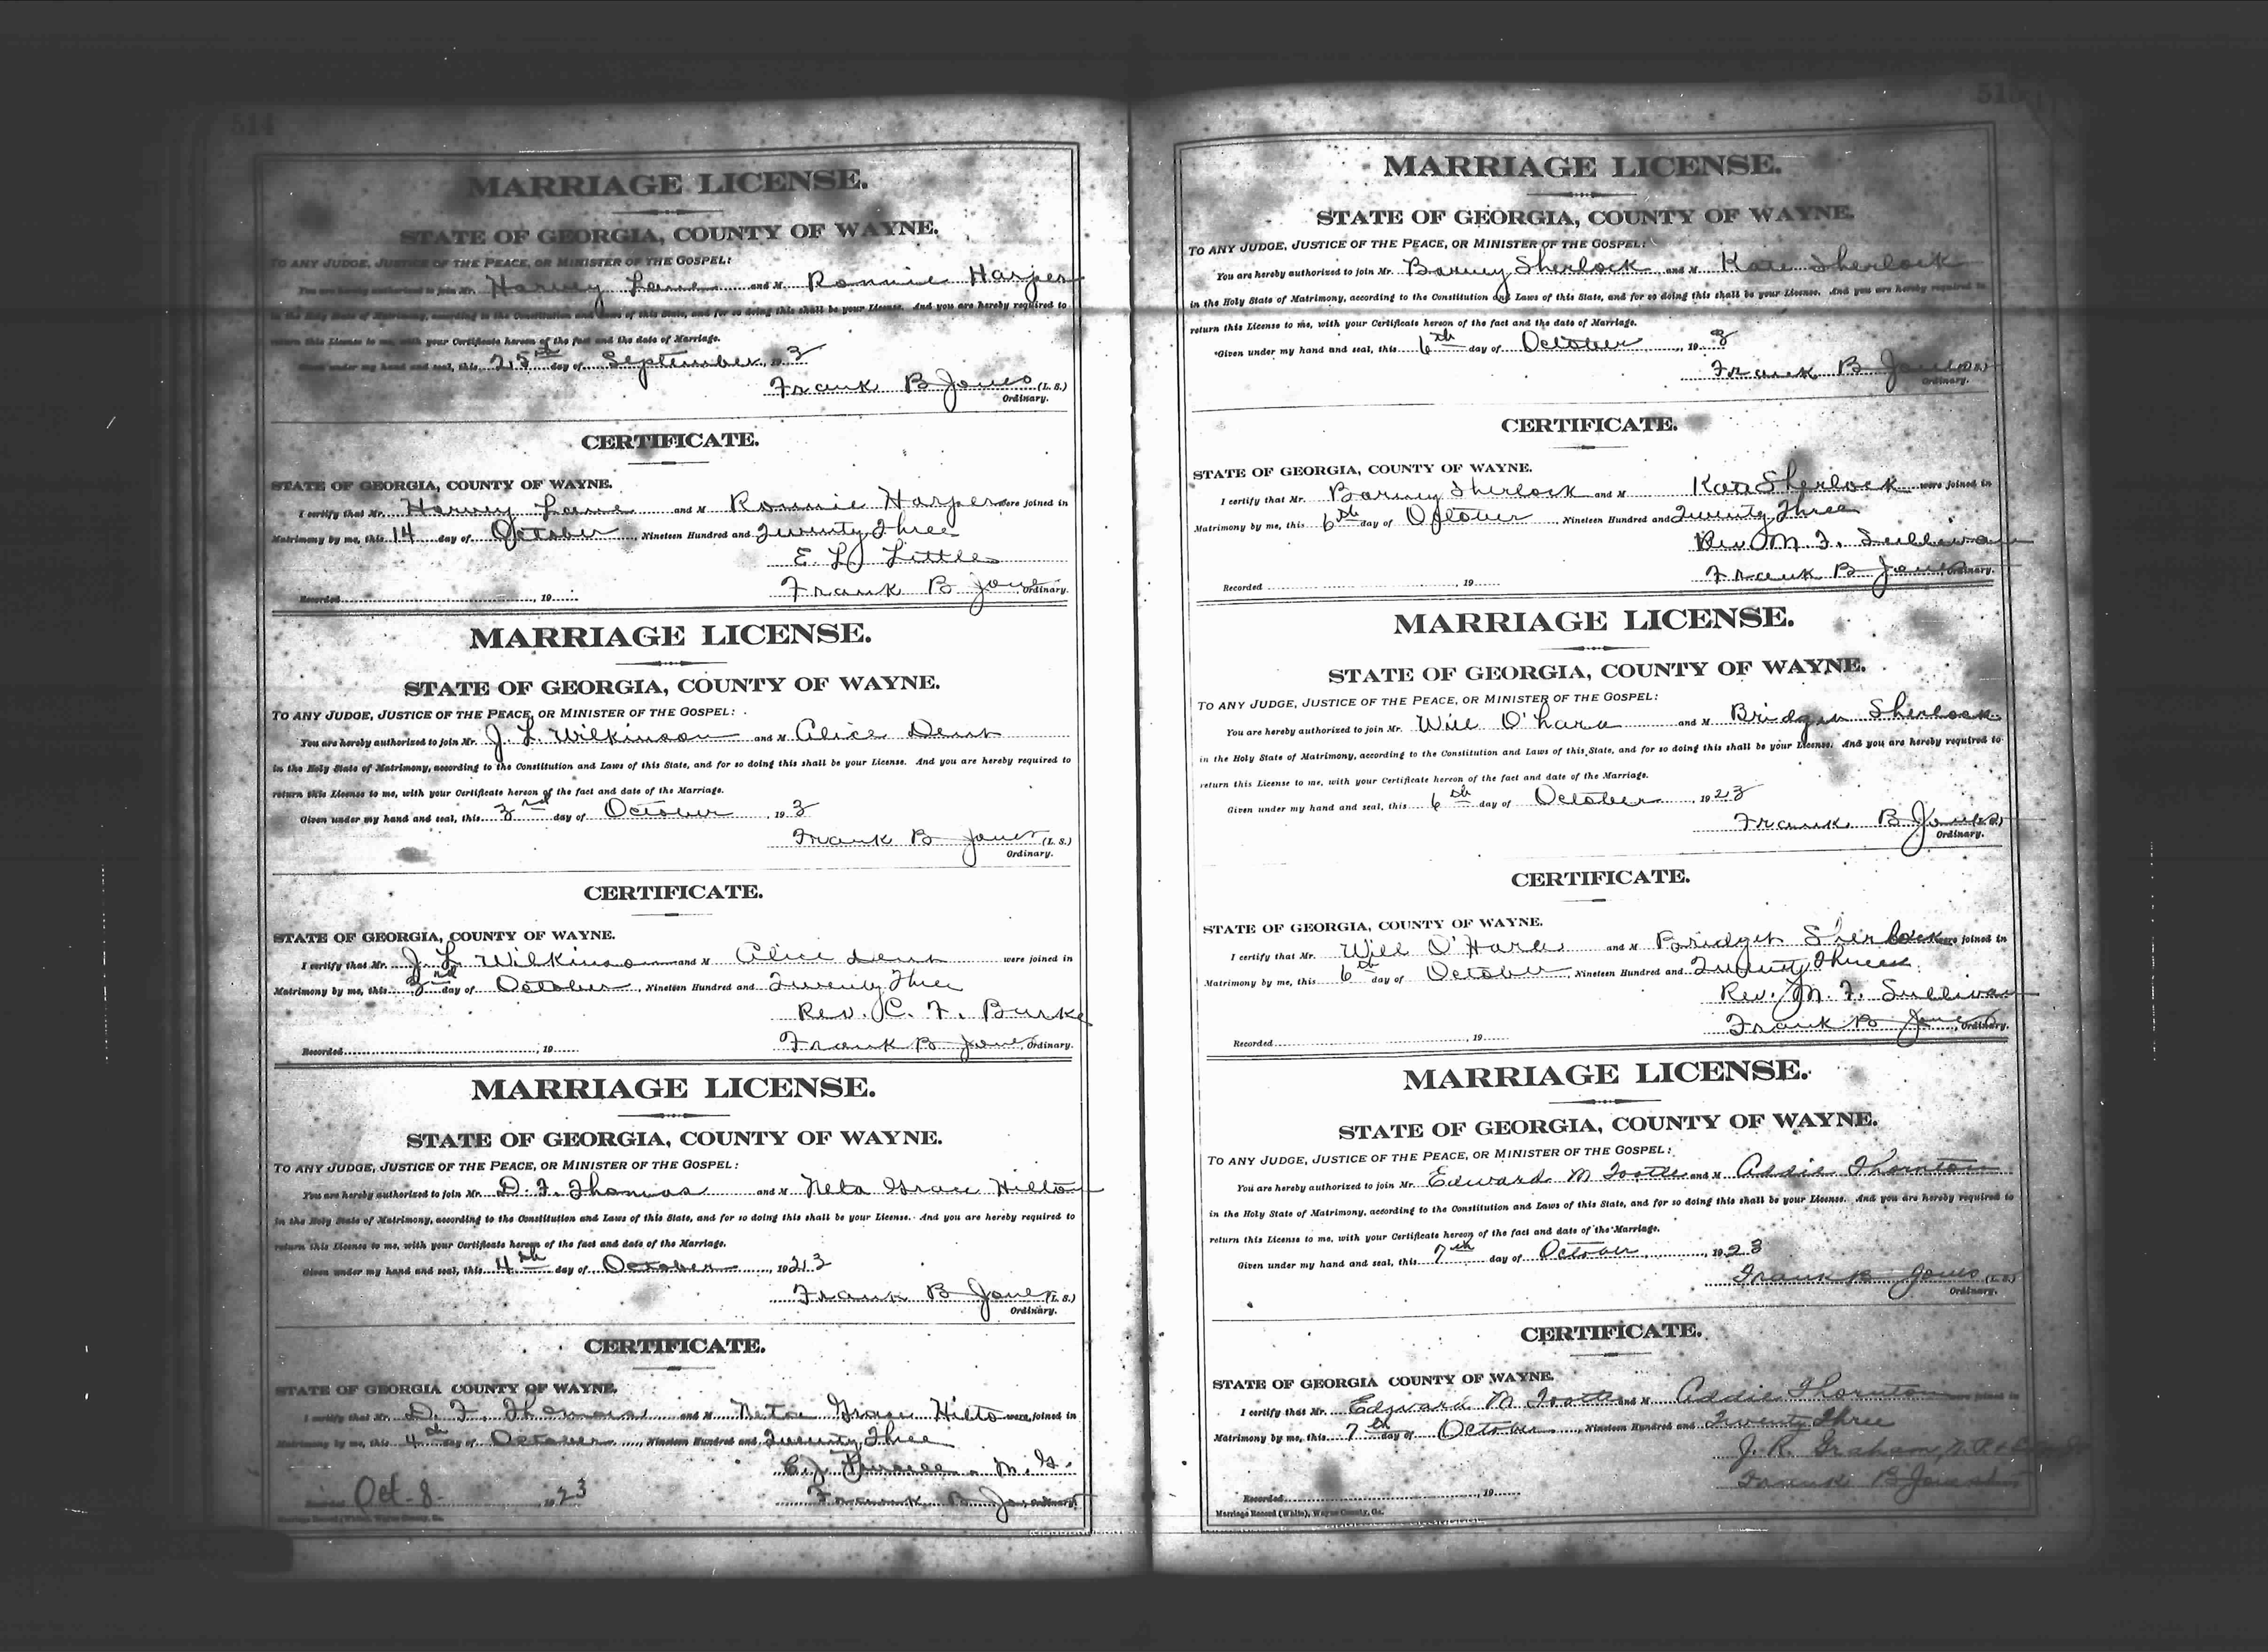 514
MARRIAGE LICENSE.
STATE OF GEORGIA, COUNTY OF WAYNE.
TO ANY JUDGE, JUSTICE OF THE PEACE, OR MINISTER OF THE GOSPEL:
You are hereby authorized to join Mr. Harvey Lane and M Ronnie Harper
in the Holy State of Matrimony, according to the Constitution and Laws of this State, and for so doing this shall be your License. And you are hereby required to
return this License to me, with your Certificate hereon of the fact and the date of Marriage.
Given under my hand and seal, this 25th day of September, 193
Frank B Jones (L. S.)
Ordinary.
CERTIFICATE.
STATE OF GEORGIA, COUNTY OF WAYNE.
I certify that Mr. Harvey Lane and M Ronnie Harper were joined in
Matrimony by me, this 14 day of October, Nineteen Hundred and Twenty Three
E. L. Little
Recorded, 19 Frank B Jones Ordinary.
MARRIAGE LICENSE.
STATE OF GEORGIA, COUNTY OF WAYNE.
TO ANY JUDGE, JUSTICE OF THE PEACE, OR MINISTER OF THE GOSPEL:
You are hereby authorized to join Mr. J. L. Wilkinson and M Alice Dent
in the Holy State of Matrimony, according to the Constitution and Laws of this State, and for so doing this shall be your License. And you are hereby required to
return this License to me, with your Certificate hereon of the fact and date of the Marriage.
Given under my hand and seal, this 3nd day of October, 193
Frank B Jones (L. S.)
Ordinary.
CERTIFICATE.
STATE OF GEORGIA, COUNTY OF WAYNE.
I certify that Mr. J. L. Wilkinson and M Alice Dent were joined in
Matrimony by me, this 3nd day of October, Nineteen Hundred and Twenty Three
Rev. C. F. Burke
Recorded, 19 Frank B Jones, Ordinary.
MARRIAGE LICENSE.
STATE OF GEORGIA, COUNTY OF WAYNE.
TO ANY JUDGE, JUSTICE OF THE PEACE, OR MINISTER OF THE GOSPEL:
You are hereby authorized to join Mr. D. F. Thomas and M Neta Grace Hilton
in the Holy State of Matrimony, according to the Constitution and Laws of this State, and for so doing this shall be your License. And you are hereby required to
return this License to me, with your Certificate hereon of the fact and date of the Marriage.
Given under my hand and seal, this 4th day of October, 1923
Frank B Jones (L. S.)
Ordinary.
CERTIFICATE.
STATE OF GEORGIA COUNTY OF WAYNE.
I certify that Mr. D. F. Thomas and M Neta Grace Hilto were joined in
Matrimony by me, this 4th day of October, Nineteen Hundred and Twenty Three
C. J. M. G.
Recorded Oct-8- 1923 Frank B Jones Ordinary.
Marriage Record (White), Wayne County, Ga.
515
MARRIAGE LICENSE.
STATE OF GEORGIA, COUNTY OF WAYNE.
TO ANY JUDGE, JUSTICE OF THE PEACE, OR MINISTER OF THE GOSPEL:
You are hereby authorized to join Mr. Barney Sherlock and M Kate Sherlock
in the Holy State of Matrimony, according to the Constitution and Laws of this State, and for so doing this shall be your License. And you are hereby required to
return this License to me, with your Certificate hereon of the fact and the date of Marriage.
Given under my hand and seal, this 6th day of October, 193
Frank B Jones (L. S.)
Ordinary.
CERTIFICATE.
STATE OF GEORGIA, COUNTY OF WAYNE.
I certify that Mr. Barney Sherlock and M Kate Sherlock were joined in
Matrimony by me, this 6th day of October, Nineteen Hundred and Twenty Three
Rev. M. F. Sullivan
Recorded, 19 Frank B Jones, Ordinary.
MARRIAGE LICENSE.
STATE OF GEORGIA, COUNTY OF WAYNE.
TO ANY JUDGE, JUSTICE OF THE PEACE, OR MINISTER OF THE GOSPEL:
You are hereby authorized to join Mr. Will O'hara and M Bridget Sherlock
in the Holy State of Matrimony, according to the Constitution and Laws of this State, and for so doing this shall be your License. And you are hereby required to
return this License to me, with your Certificate hereon of the fact and date of the Marriage.
Given under my hand and seal, this 6th day of October, 1923
Frank B Jones (L. S.)
Ordinary.
CERTIFICATE.
STATE OF GEORGIA, COUNTY OF WAYNE.
I certify that Mr. Will O'Hara and M Bridget Sherlock were joined in
Matrimony by me, this 6th day of October, Nineteen Hundred and Twenty Three
Rev. M. F. Sullivan
Recorded, 19 Frank B Jones, Ordinary.
MARRIAGE LICENSE.
STATE OF GEORGIA, COUNTY OF WAYNE.
TO ANY JUDGE, JUSTICE OF THE PEACE, OR MINISTER OF THE GOSPEL:
You are hereby authorized to join Mr. Edward M Tootle and M Addie Thornton
in the Holy State of Matrimony, according to the Constitution and Laws of this State, and for so doing this shall be your License. And you are hereby required to
return this License to me, with your Certificate hereon of the fact and date of the Marriage.
Given under my hand and seal, this 7th day of October, 1923
Frank B Jones (L. S.)
Ordinary.
CERTIFICATE.
STATE OF GEORGIA COUNTY OF WAYNE.
I certify that Mr. Edward M Tootle and M Addie Thornton were joined in
Matrimony by me, this 7th day of October, Nineteen Hundred and Twenty Three
J. R. Graham,
Recorded, 19 Frank B Jones
Marriage Record (White), Wayne County, Ga.